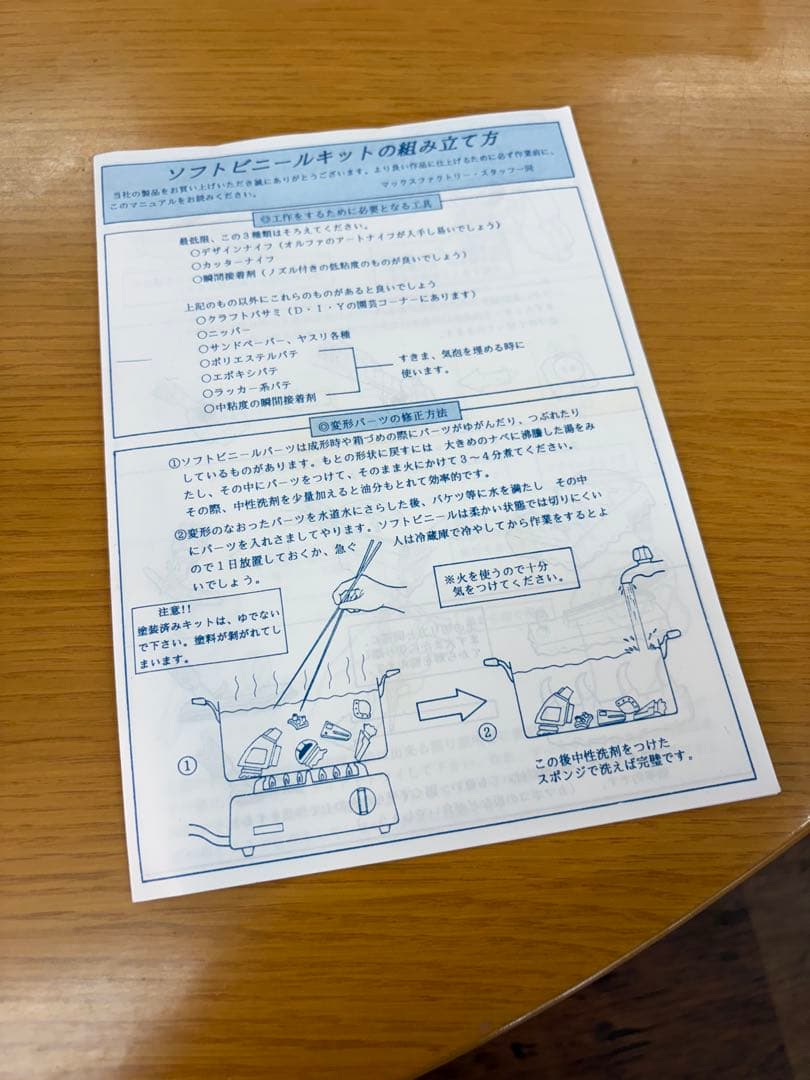 ソフトビニールキットの組み立て方
当社の製品をお買い上げいただき誠にありがとうございます。より良い作品に仕上げるために必ず作業前に、
このマニュアルをお読みください。
マックスファクトリー・スタッフ一同
◎工作をするために必要となる工具
最低限、この3種類はそろえてください。
○デザインナイフ(オルファのアートナイフが入手し易いでしょう)
○カッターナイフ
○瞬間接着剤(ノズル付きの低粘度のものが良いでしょう)
上記のもの以外にこれらのものがあると良いでしょう
○クラフトバサミ(D・I・Yの園芸コーナーにあります)
○ニッパー
○サンドペーパー、ヤスリ各種
○ポリエステルパテ
○エポキシパテ
○ラッカー系パテ
○中粘度の瞬間接着剤
すきま、気泡を埋める時に
使います。
◎変形パーツの修正方法
①ソフトビニールパーツは成形時や箱づめの際にパーツがゆがんだり、つぶれたり
しているものがあります。もとの形状に戻すには 大きめのナベに沸騰した湯をみ
たし、その中にパーツをつけて、そのまま火にかけて3〜4分煮てください。
その際、中性洗剤を少量加えると油分もとれて効率的です。
②変形のなおったパーツを水道水にさらした後、バケツ等に水を満たし その中
にパーツを入れさましてやります。ソフトビニールは柔かい状態では切りにくい
ので1日放置しておくか、急ぐ 人は冷蔵庫で冷やしてから作業をするとよ
いでしょう。
注意!!
塗装済みキットは、ゆでない
で下さい。塗料が剝がれてし
まいます。
※火を使うので十分
気をつけてください。
①
②
この後中性洗剤をつけた
スポンジで洗えば完璧です。